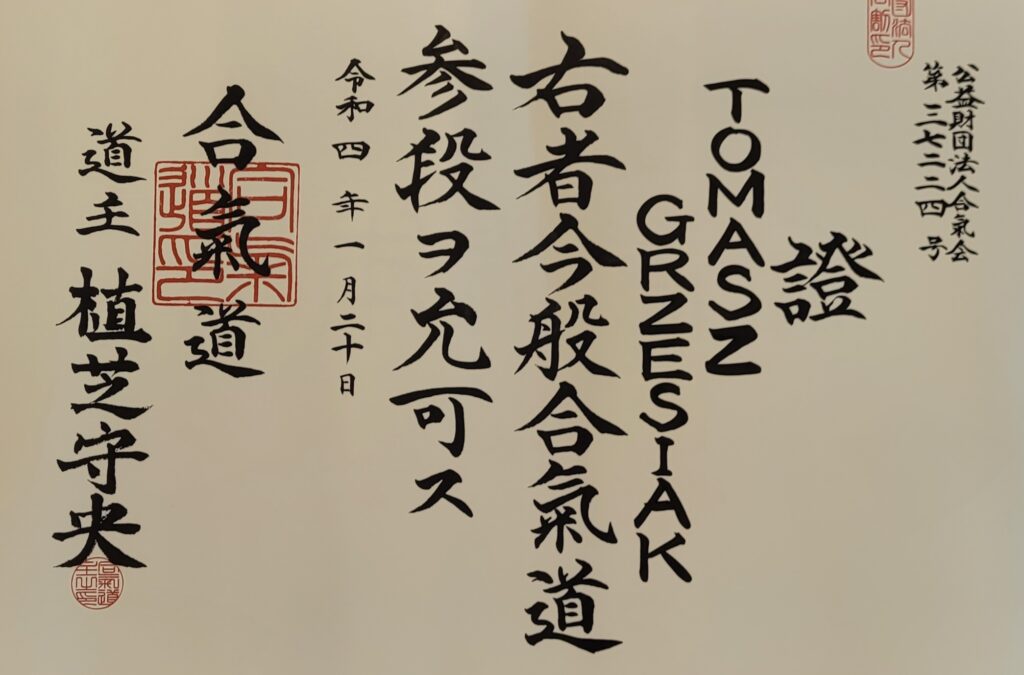 公益財団法人合氣会
第三七二二四号
證
TOMASZ
GRZESIAK
右者今般合氣道
参段ヲ允可ス
令和四年一月二十日
合氣道
道主 植芝守央